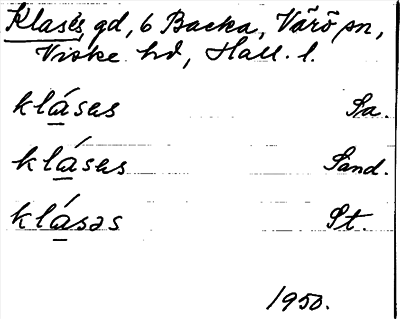 Klasès gd, 6 Backa, Värö sn,
Viske hd, Hall. l.
klásas Sa.
klásas Sand.
klásəs St.
1950.